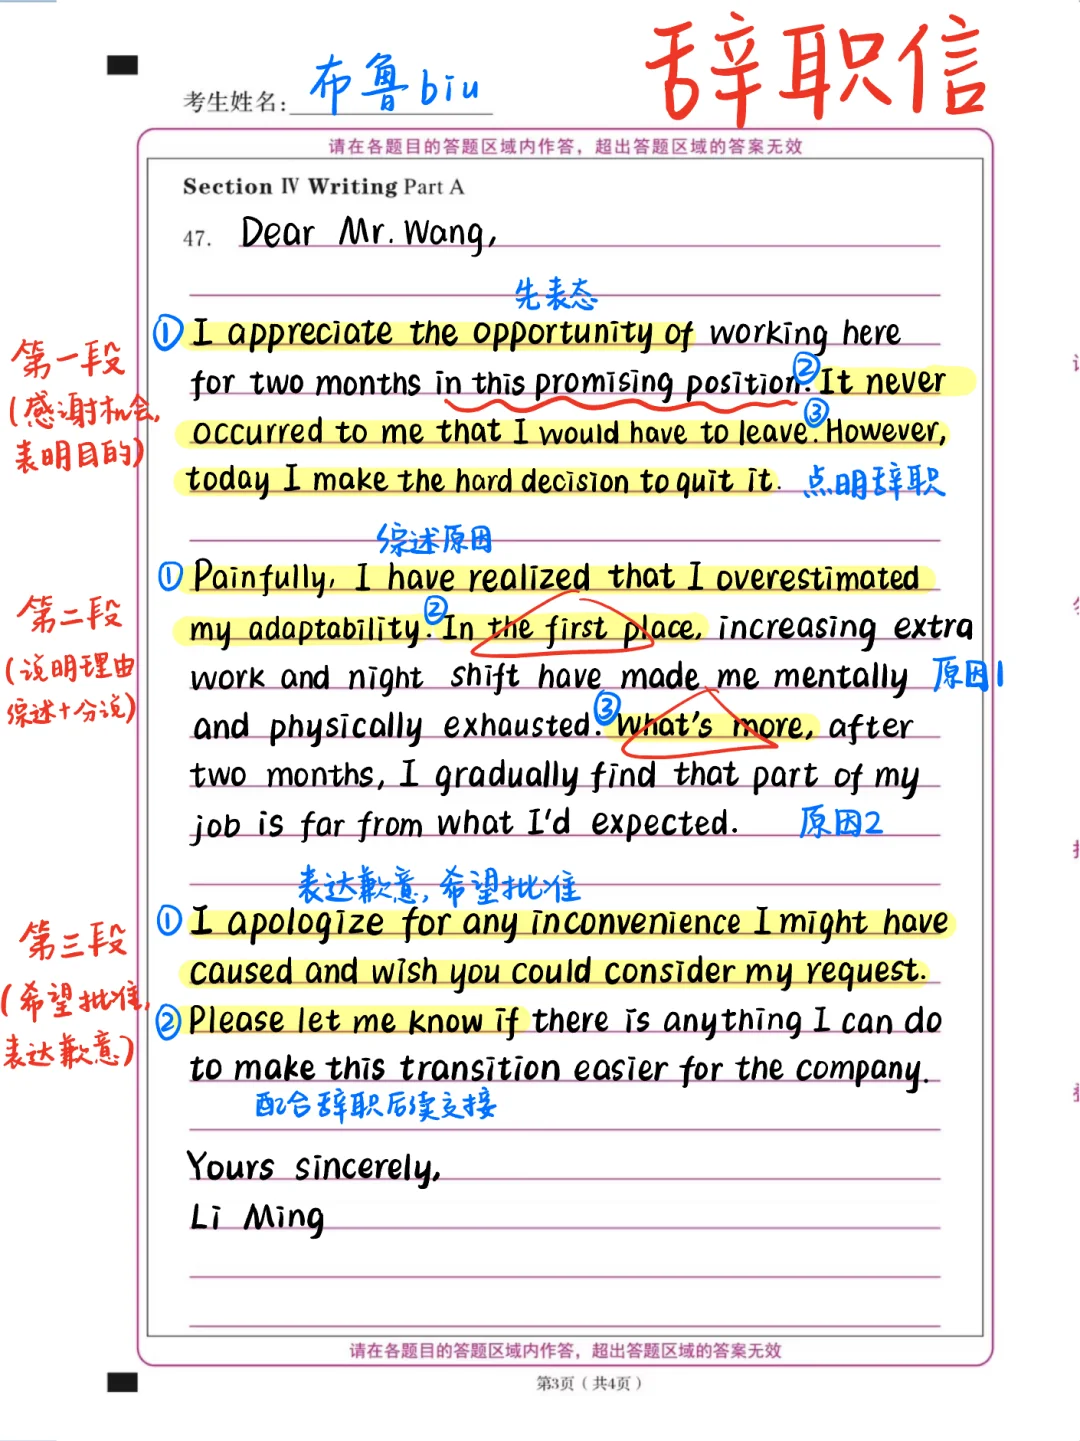 辞职信
考生姓名： 布鲁biu
请在各题目的答题区域内作答，超出答题区域的答案无效
Section Ⅳ Writing Part A
47. Dear Mr. Wang,
先表态
① I appreciate the opportunity of working here
第一段
for two months in this promising position. ② It never
(感谢机会,
occurred to me that I would have to leave. ③ However,
表明目的)
today I make the hard decision to quit it. 点明辞职
综述原因
① Painfully, I have realized that I overestimated
第二段
my adaptability. ② In the first place, increasing extra
(说明理由
work and night shift have made me mentally 原因1
综述+分说)
and physically exhausted. ③ What's more, after
two months, I gradually find that part of my
job is far from what I'd expected. 原因2
表达歉意,希望批准
① I apologize for any inconvenience I might have
第三段
caused and wish you could consider my request.
(希望批准,
② Please let me know if there is anything I can do
表达歉意)
to make this transition easier for the company.
配合辞职后续交接
Yours sincerely,
Li Ming
请在各题目的答题区域内作答，超出答题区域的答案无效
第3页（共4页）